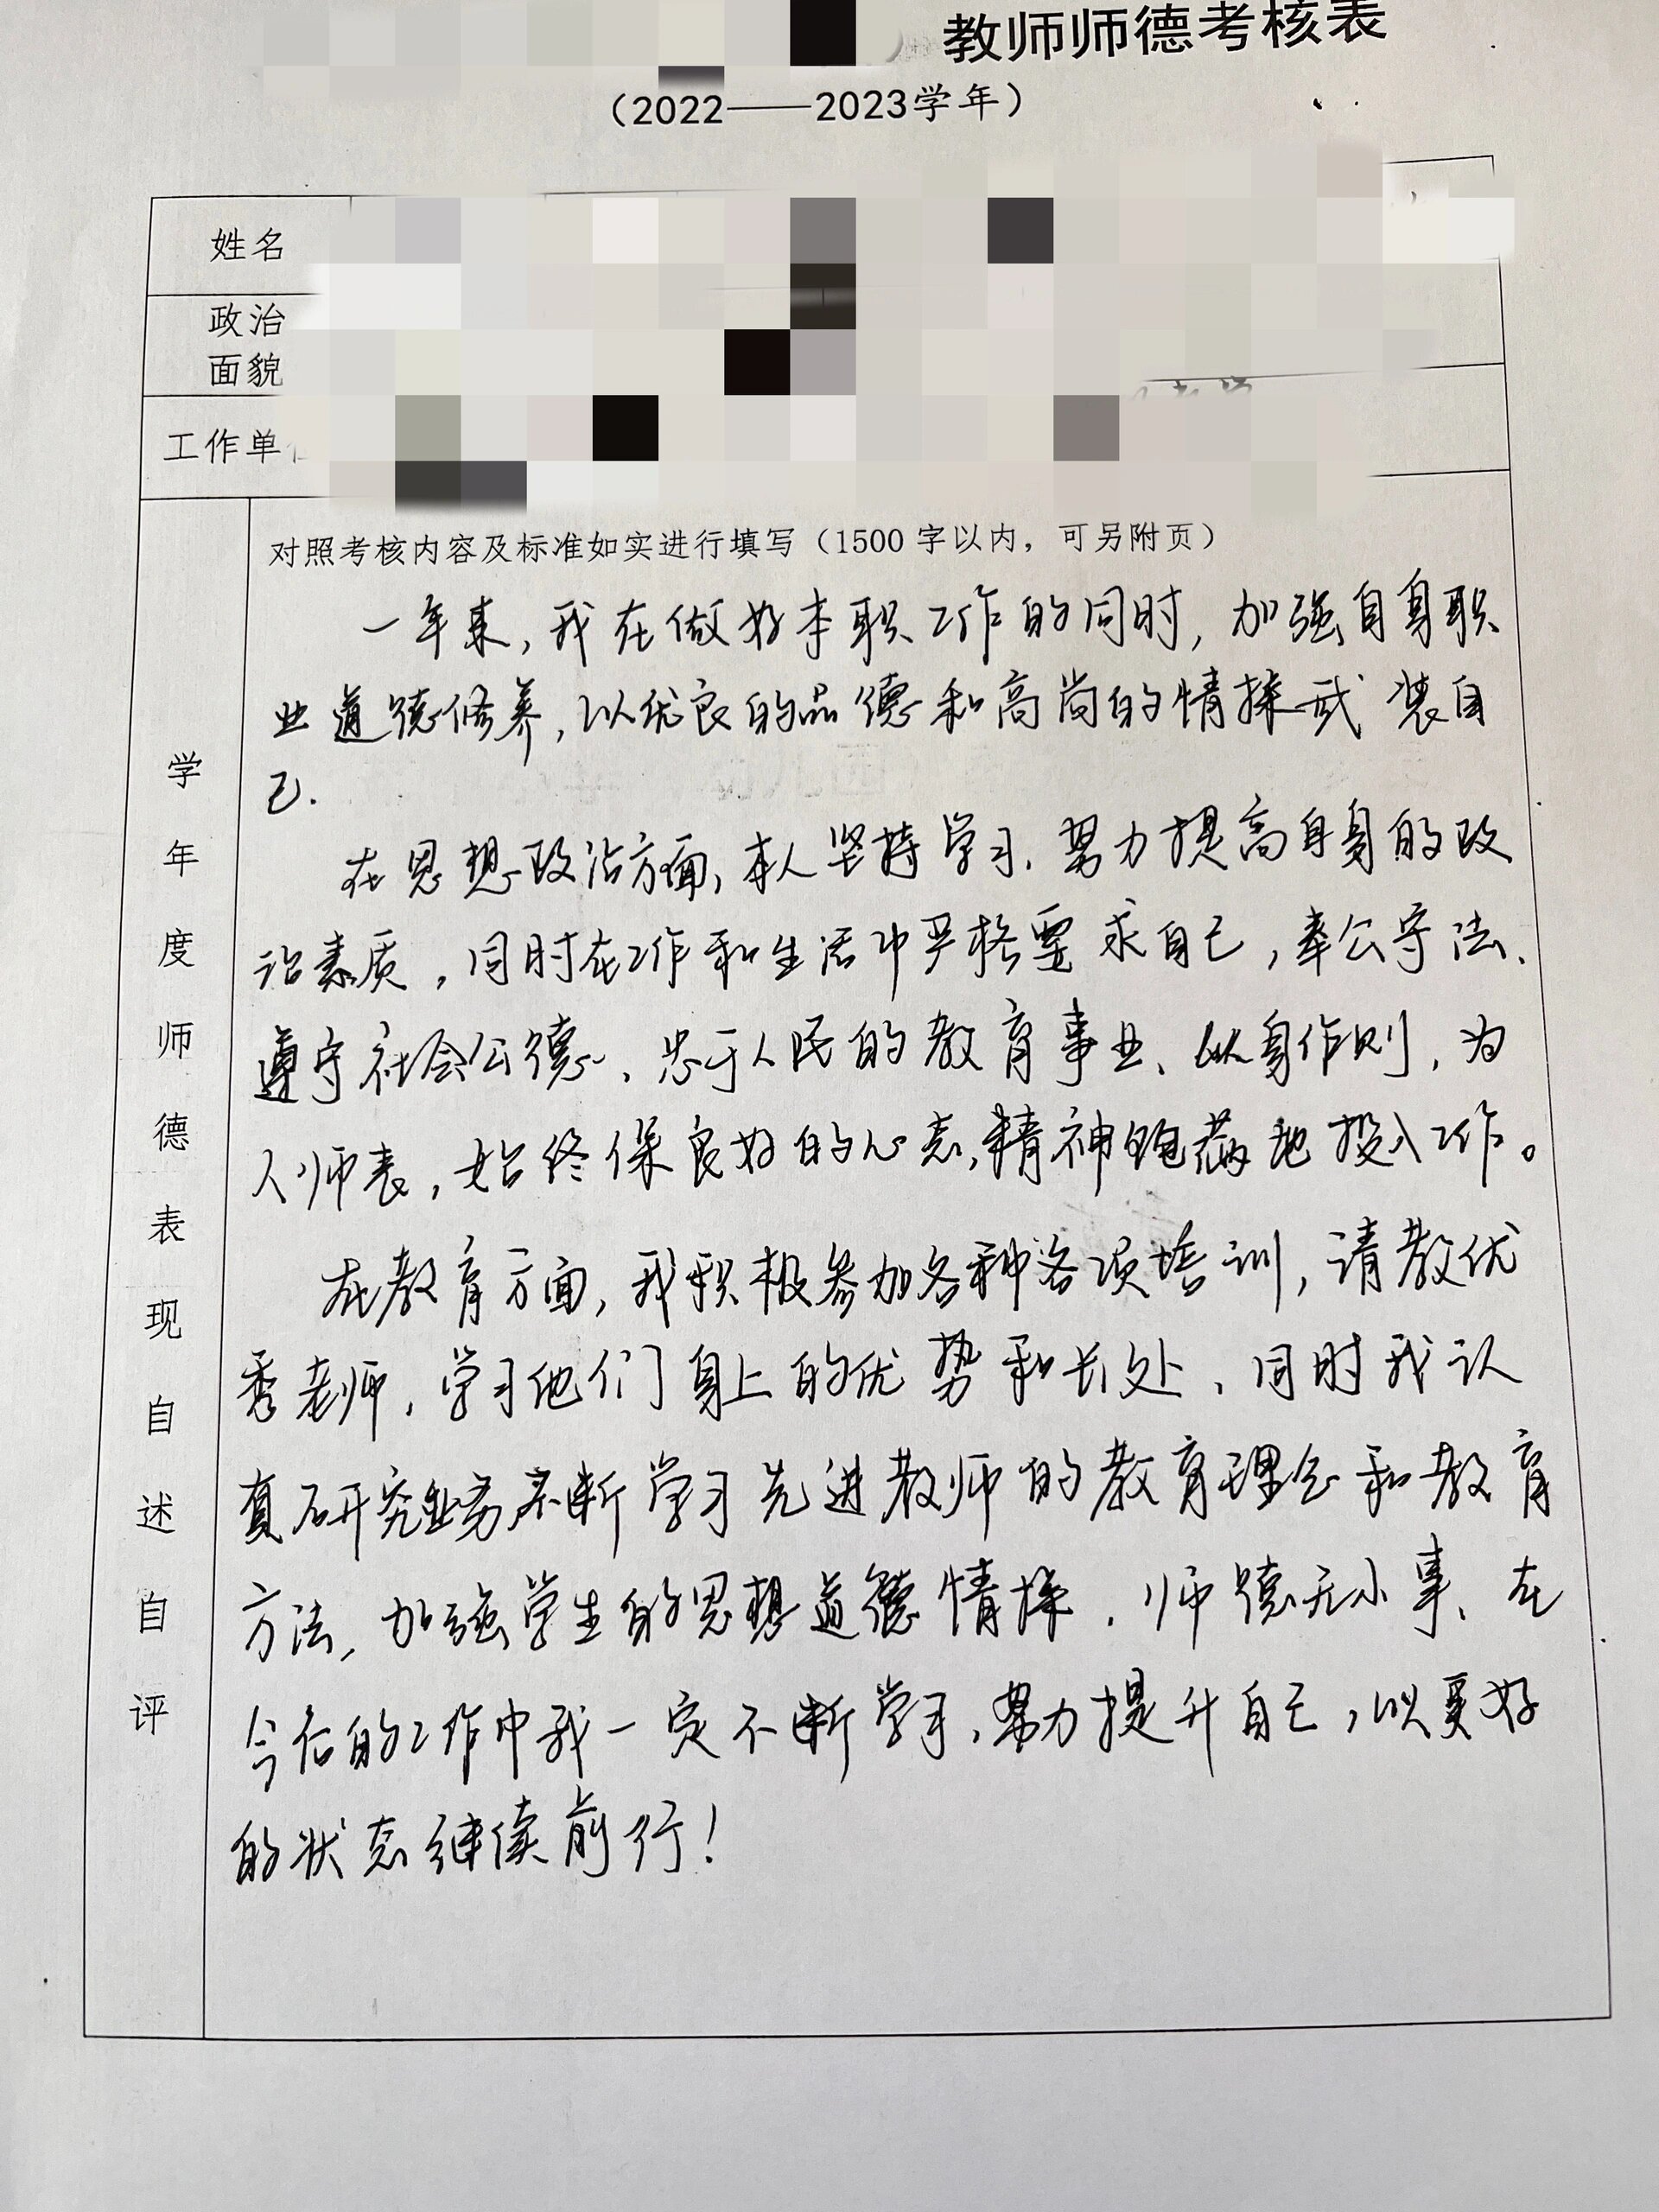 教师师德考核表
（2022——2023学年）
姓名
政治
面貌
工作单
学年度师德表现自述自评
对照考核内容及标准如实进行填写（1500 字以内，可另附页）
一年来，我在做好本职工作的同时，加强自身职
业道德修养，以优良的品德和高尚的情操武装自
己.
在思想政治方面，本人坚持学习、努力提高自身的政
治素质，同时在工作和生活中严格要求自己，奉公守法、
遵守社会公德、忠于人民的教育事业、以身作则，为
人师表，始终保良好的心态，精神饱满地投入工作。
在教育方面，我积极参加各种各项培训，请教优
秀老师，学习他们身上的优势和长处、同时我认
真研究业务不断学习先进教师的教育理念和教育
方法，加强学生的思想道德情操．师德无小事、在
今后的工作中我一定不断学习、努力提升自己，以更好
的状态继续前行！